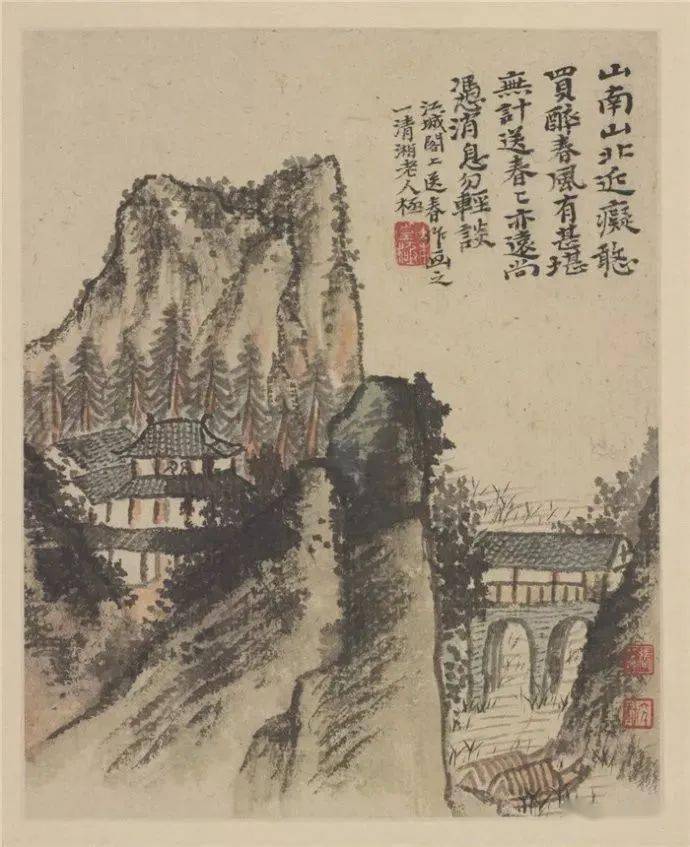 山南山北近癡憨
買醉春風有甚堪
無計送春亡亦遠尚
憑消息勿輕談
江城閣上送春作画之
一清湘老人極